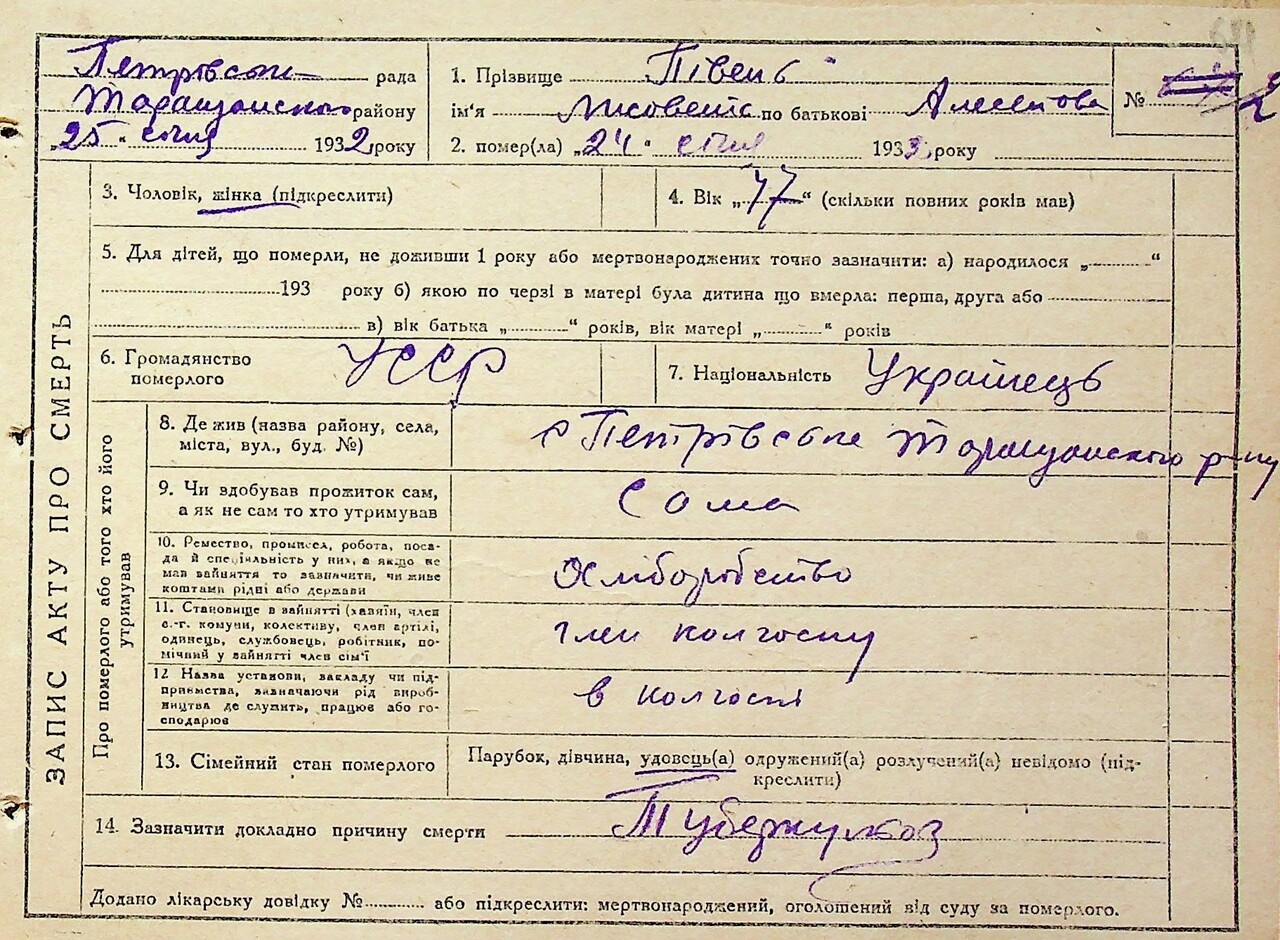 Петрівська рада
Таращанського району
„25" січня 1932 року
1. Прізвище Півень
ім'я по батькові
№ 2
2. помер(ла) „24" січня 1933 року
ЗАПИС АКТУ ПРО СМЕРТЬ
3. Чоловік, жінка (підкреслити)
4. Вік „77" (скільки повних років мав)
5. Для дітей, що померли, не доживши 1 року або мертвонароджених точно зазначити: а) народилося „ "
193 року б) якою по черзі в матері була дитина що вмерла: перша, друга або
в) вік батька „ " років, вік матері „ " років
6. Громадянство
померлого
УССР
7. Національність Українець
Про померлого або того хто його
утримував
8. Де жив (назва району, села,
міста, вул., буд. №)
с Петрівське Таращанского р-ну
9. Чи здобував прожиток сам,
а як не сам то хто утримував
Сама
10. Ремество, промисел, робота, поса-
да й спеціяльність у них, а якщо не
мав зайняття то зазначити, чи живе
коштами рідні або держави
Хліборобство
11. Становище в зайнятті (хазяїн, член
с.-г. комуни, колективу, член артілі,
одинець, службовець, робітник, по-
мічний у зайнятті член сім'ї
член колгоспу
12 Назва установи, закладу чи під-
приємства, зазначаючи рід вироб-
ництва де служить, працює або го-
сподарює
в колгоспі
13. Сімейний стан померлого
Парубок, дівчина, удовець(а) одружений(а) розлучений(а) невідомо (під-
креслити)
14. Зазначити докладно причину смерти Туберкульоз
Додано лікарську довідку № або підкреслити: мертвонароджений, оголошений від суду за померлого.